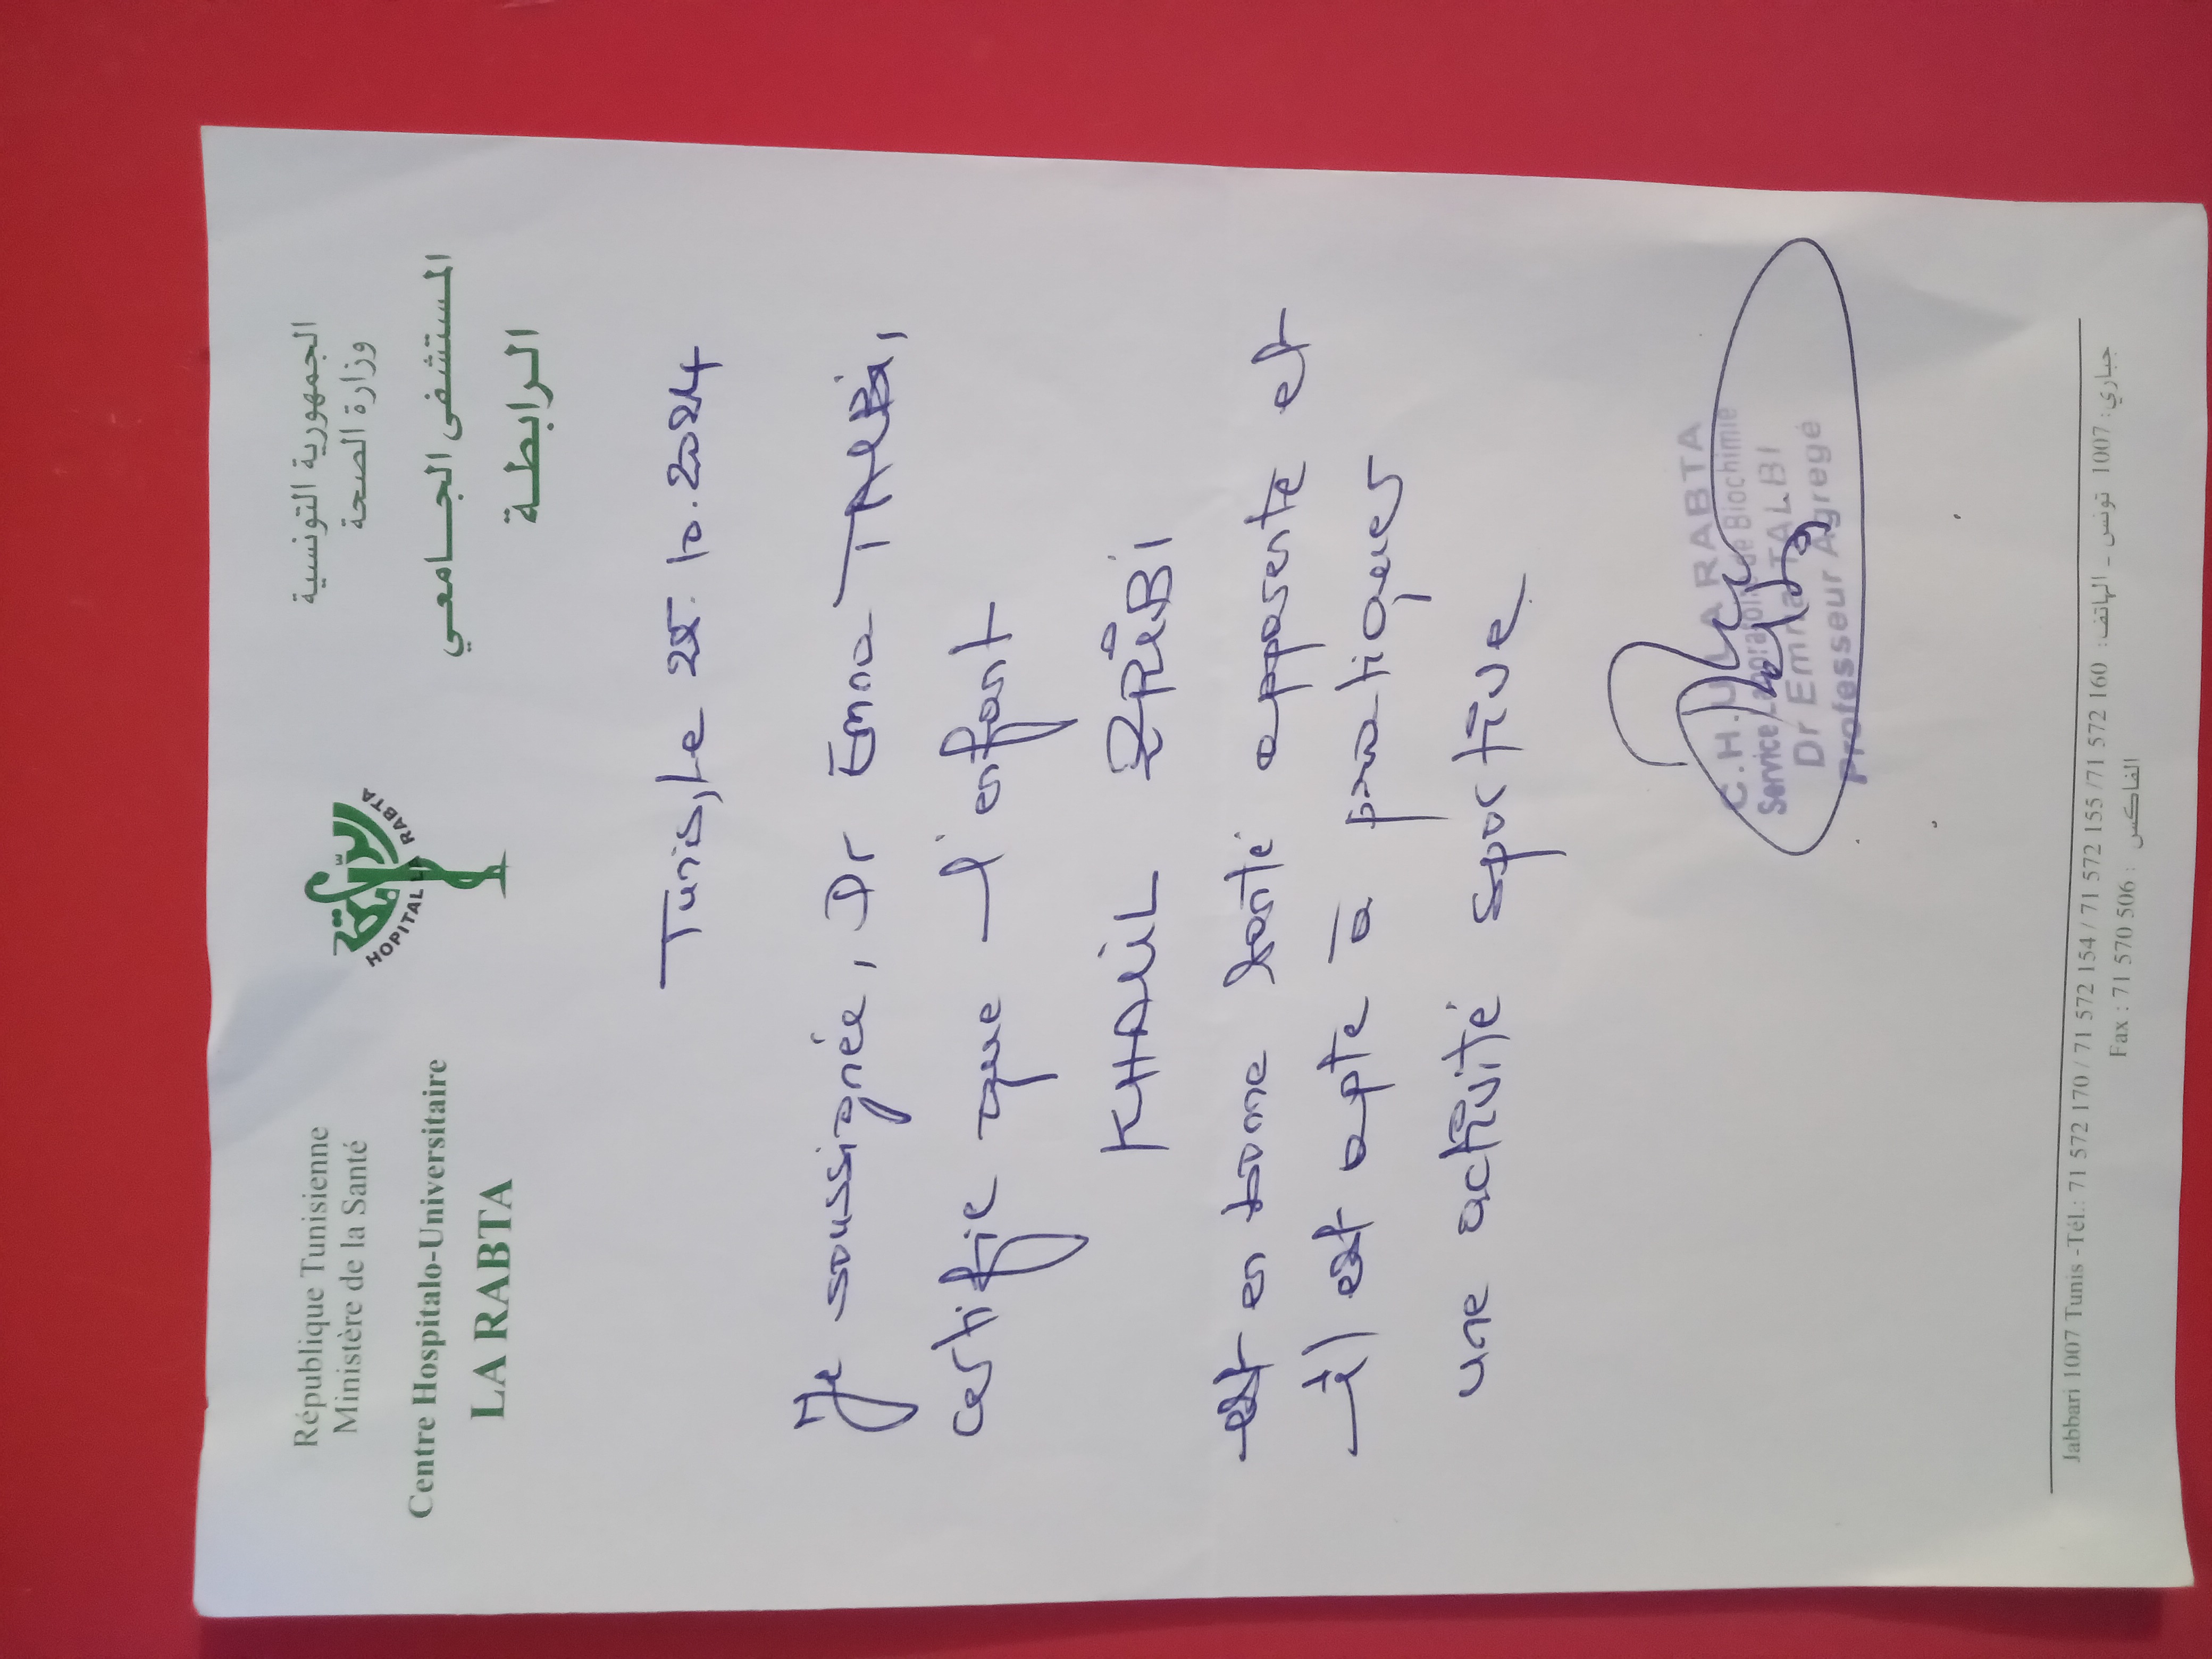 République Tunisienne
Ministère de la Santé
Centre Hospitalo-Universitaire
LA RABTA
الرابطة
HOPITAL LA RABTA
الجمهورية التونسية
وزارة الصحة
المستشفى الجامعي
الرابطة
Tunis, le 25.10.2024
Je soussignée, Dr Emna TALBI,
certifie que l'enfant
KHALIL
est en bonne santé apparente et
il est apte à pratiquer
une activité sportive
C.H.U LA RABTA
Service Laboratoire de Biochimie
Dr Emna TALBI
Professeur Agregé
Jabbari 1007 Tunis -Tél.: 71 572 170 / 71 572 154 / 71 572 155 /71 572 160 : جباري: 1007 تونس - الهاتف
Fax : 71 570 506 : الفاكس